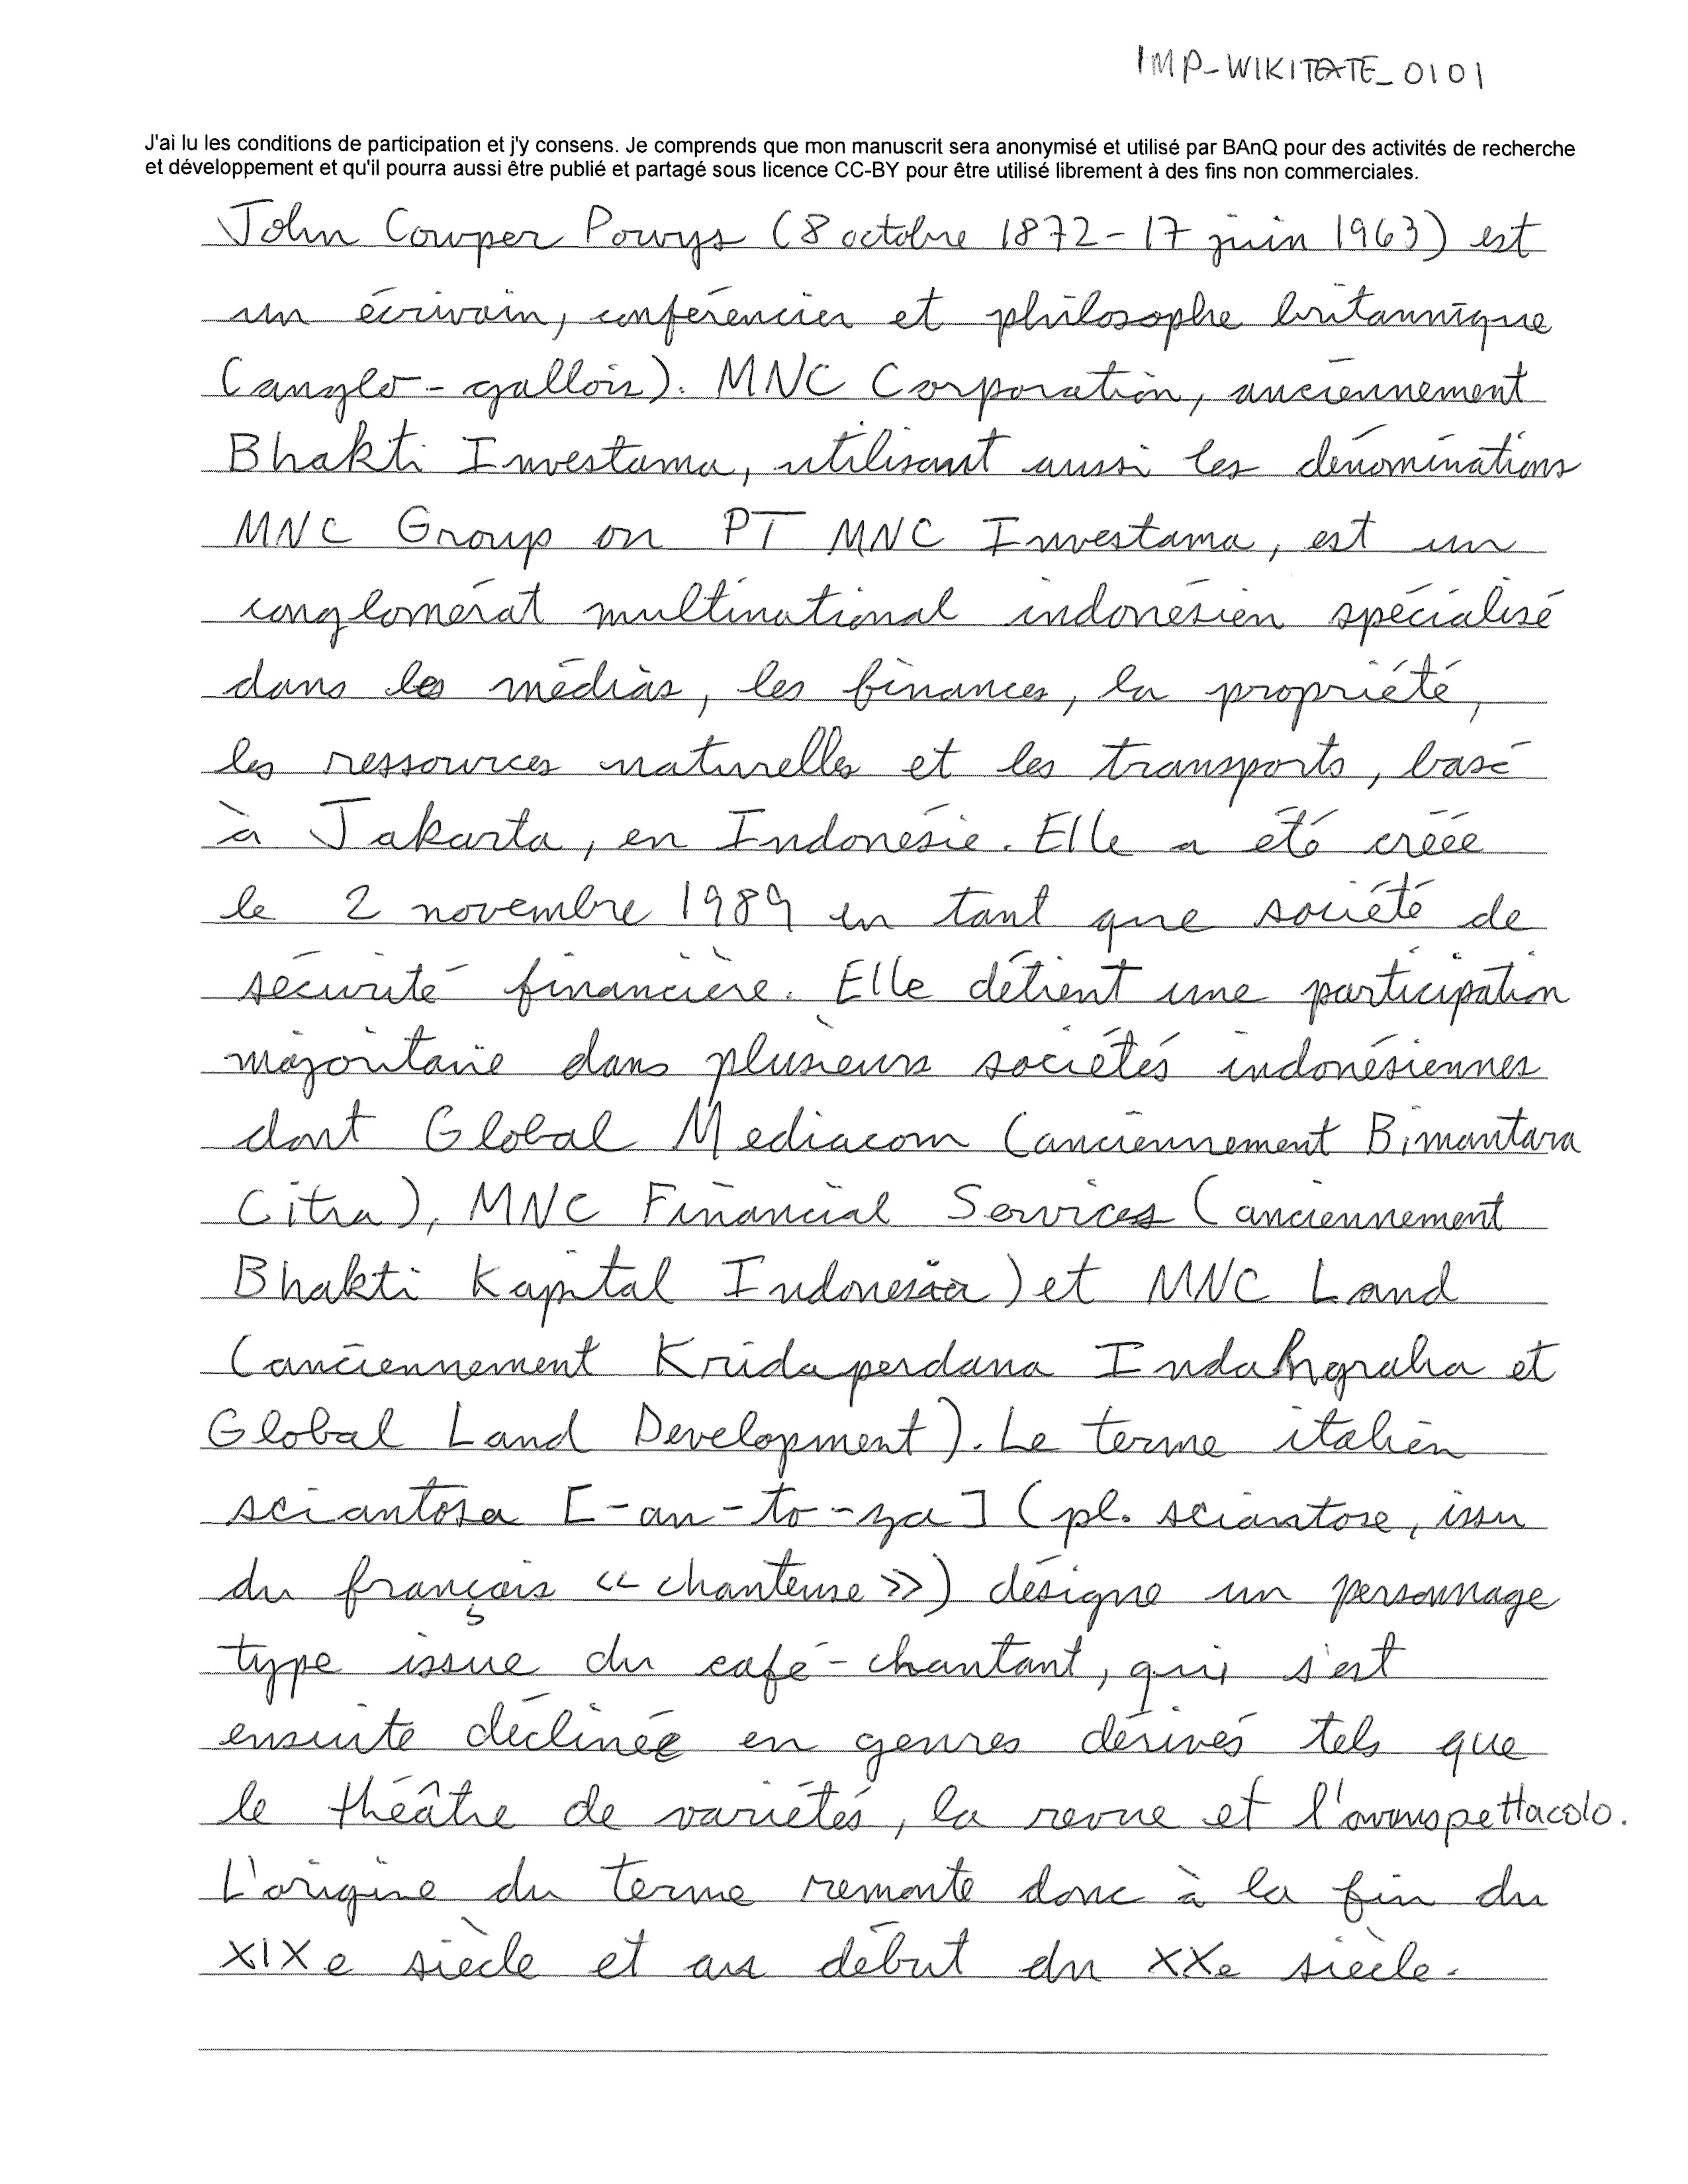 IMP-WIKITEXTE_0101
J'ai lu les conditions de participation et j'y consens. Je comprends que mon manuscrit sera anonymisé et utilisé par BAnQ pour des activités de recherche
et développement et qu'il pourra aussi être publié et partagé sous licence CC-BY pour être utilisé librement à des fins non commerciales.
John Cowper Powys (8 octobre 1872-17 juin 1963) est
un écrivain, conférencier et philosophe britannique
(anglo-gallois). MNC Corporation, anciennement
Bhakti Investama, utilisant aussi les dénominations
MNC Group ou PT MNC Investama, est un
conglomérat multinational indonésien spécialisé
dans les médias, les finances, la propriété,
les ressources naturelles et les transports, basé
à Jakarta, en Indonésie. Elle a été créée
le 2 novembre 1989 en tant que société de
sécurité financière. Elle détient une participation
majoritaire dans plusieurs sociétés indonésiennes
dont Global Mediacom (anciennement Bimantara
Citra), MNC Financial Services (anciennement
Bhakti Kapital Indonesia) et MNC Land
(anciennement Kridaperdana Indahgraha et
Global Land Development). Le terme italien
sciantosa [-an-to-za] (pl. sciantose, issu
du français << chanteuse >>) désigne un personnage
type issue du café-chantant, qui s'est
ensuite déclinée en genres dérivés tels que
le théâtre de variétés, la revue et l'avanspettacolo.
L'origine du terme remonte donc à la fin du
XIXe siècle et au début du XXe siècle.